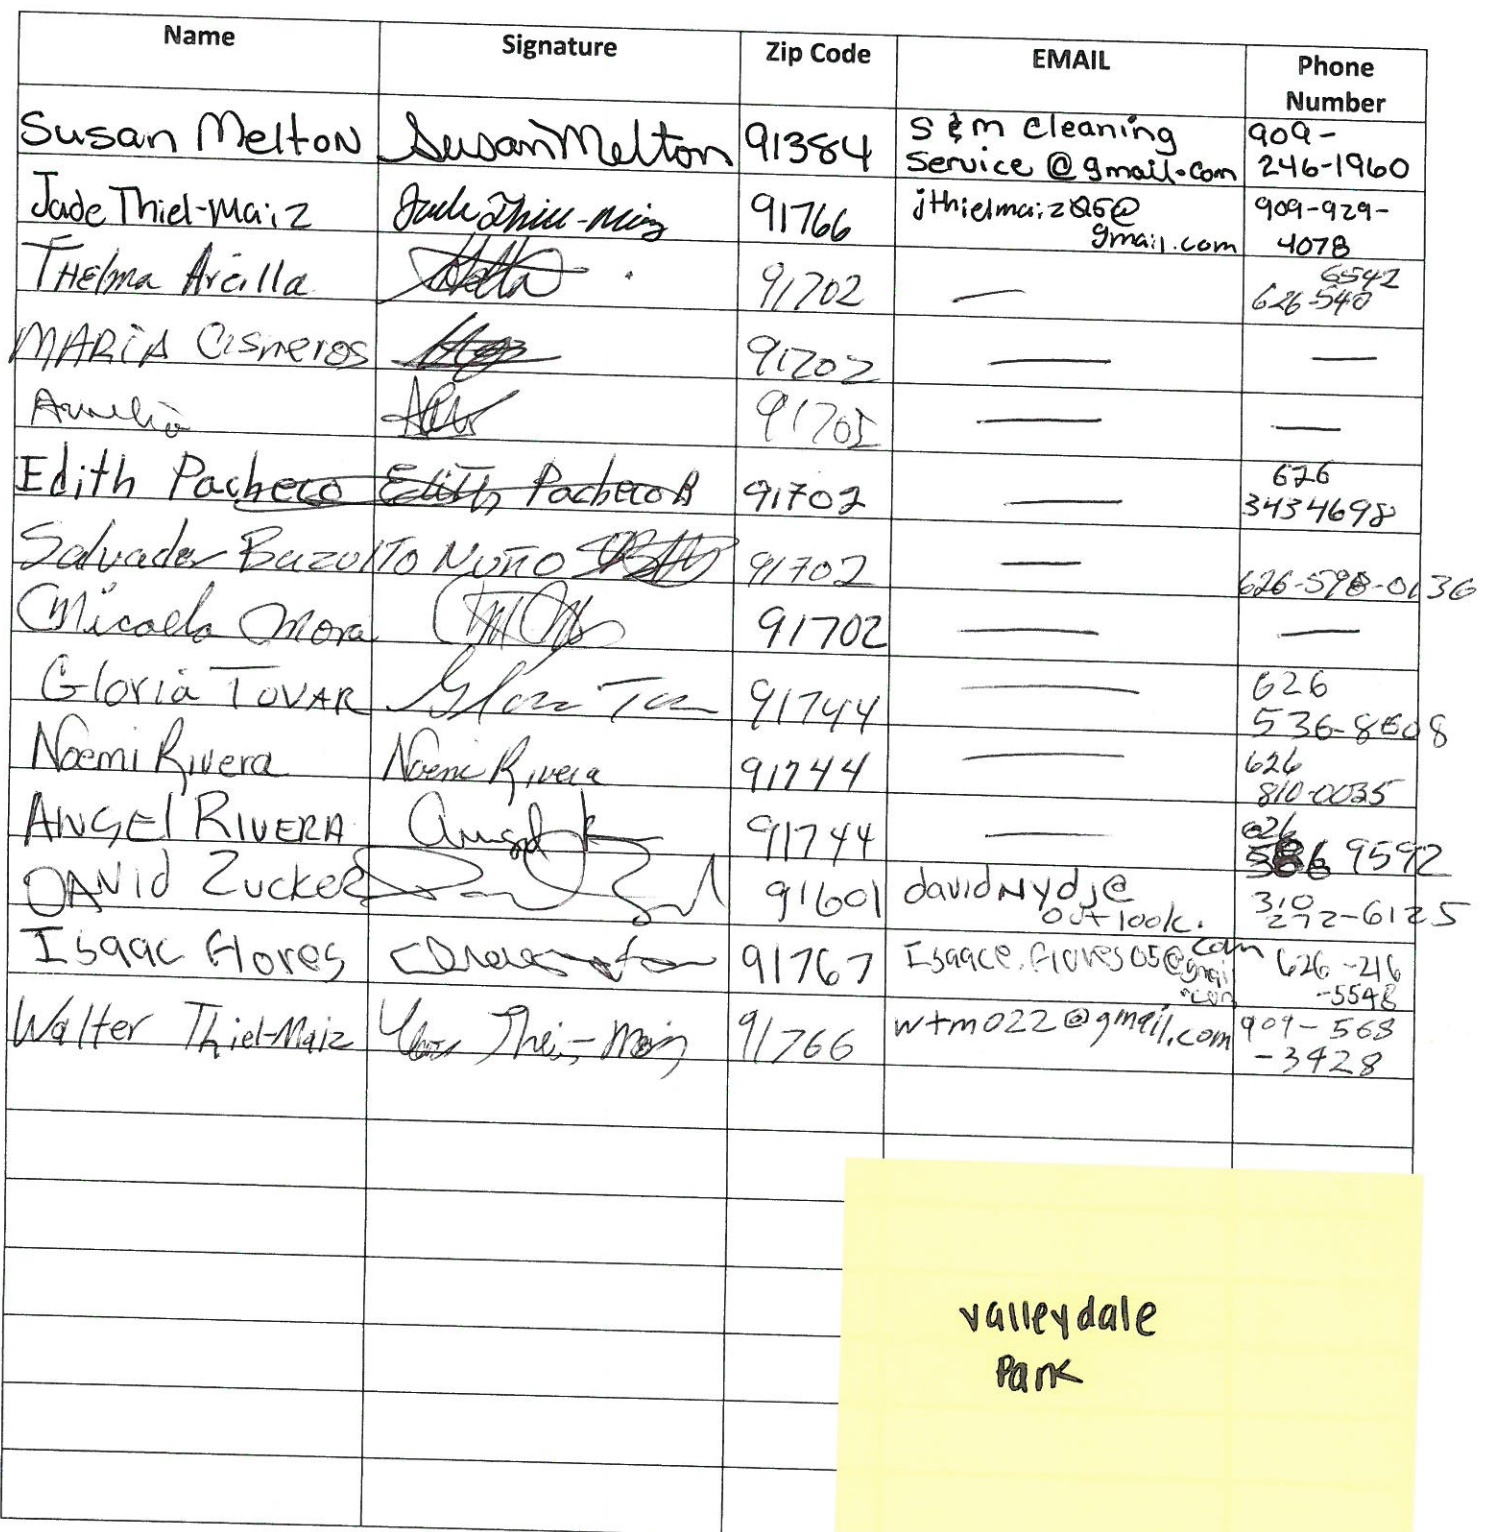 Name Signature Zip Code EMAIL Phone
Number
Susan Melton Susan Melton 91384 S & m Cleaning 909-
Service@gmail.com 246-1960
Jade Thiel-Maiz Jade Thiel-Maiz 91766 jthielmaiz05@ 909-929-
gmail.com 4078
Thelma Arcilla 91702 — 6542
626-540
MARiA Cisneros 91702 — —
Aurelio — —
Edith Pacheco Edith Pacheco B 91702 — 626
3434698
Salvador Bazulto Nuño 91702 —
Micaela Mora 91702 — —
Gloria TOVAR 91744 — 626
536-8608
Noemi Rivera Noemi Rivera 91744 — 626
810-0035
ANGEl RIVERA Angel R 91744 — 626
9592
DAVid Zucker 91601 davidNydj@ 310
outlook. 292-6125
com
Isaac Flores 91767 Isaace.flores05@gmail 626-216
.com -5548
Walter Thiel-Maiz 91766 wtm022@gmail.com 909-568
-3428
valleydale
Park